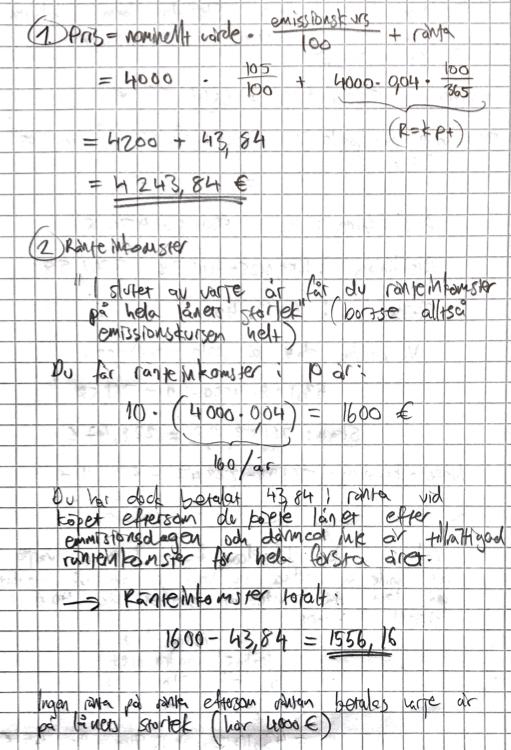 ① Pris = nominellt värde · emissionskurs/100 + ränta
= 4000 · 105/100 + 4000 · 0,04 · 100/365
(R = kpt)
= 4200 + 43,84
= 4 243,84 €
② Ränteinkomster
"I slutet av varje år får du ränteinkomster
på hela lånets storlek" (bortse alltså
emissionskursen helt)
Du får ränteinkomster i 10 år:
10 · (4000 · 0,04) = 1600 €
160/år
Du har dock betalat 43,84 i ränta vid
köpet eftersom du köpte lånet efter
emmisionsdagen och därmed inte är tillrättigad
ränteinkomster för hela första året.
→ Ränteinkomster totalt:
1600 - 43,84 = 1556,16
Ingen ränta på ränta eftersom räntan betalas varje år
på lånets storlek (här 4000 €)